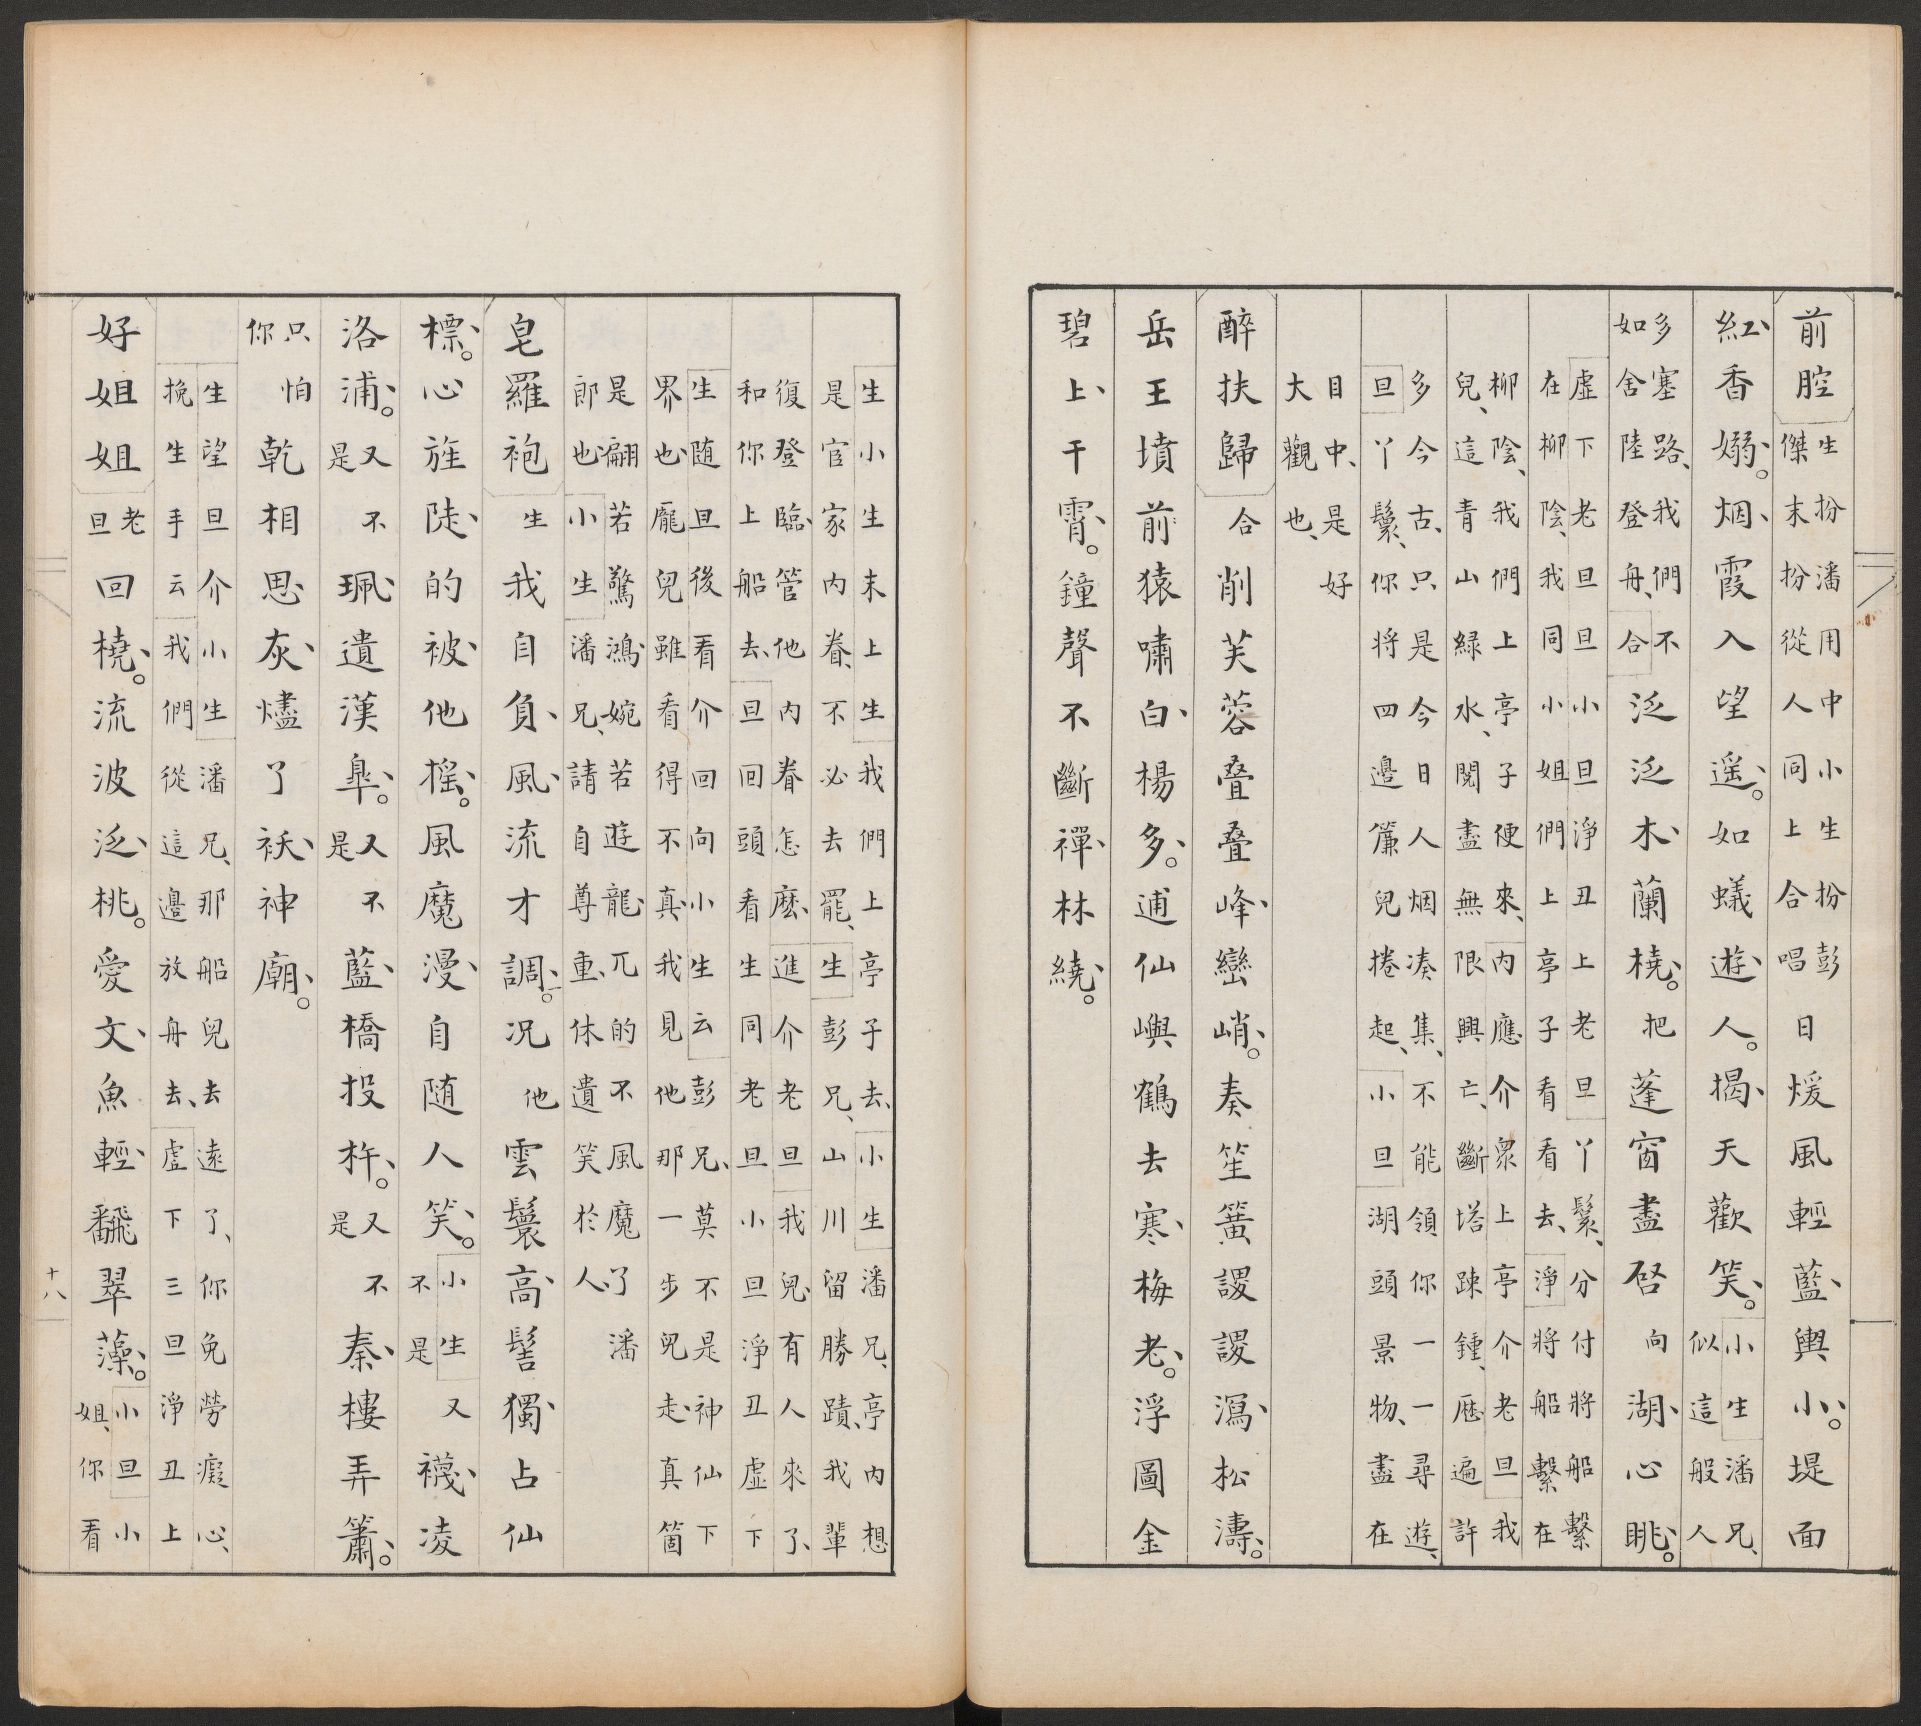 前腔 生扮潘用中小生扮彭
傑末扮從人同上合唱 日煖風輕藍輿小堤面
紅香嫋烟霞入望遥如蟻遊人揭天歡笑 小生潘兄
似這般人
多塞路我們不
如舍陸登舟 合 泛泛木蘭橈把蓬窗盡啓向湖心眺
虛下老旦旦小旦淨丑上老旦丫鬟分付將船繫
在柳陰我同小姐們上亭子看看去淨將船繫在
柳陰我們上亭子便來內應介衆上亭介老旦我
兒這青山綠水閱盡無限興亡斷塔疎鍾歷遍許
多今古只是今今日人烟湊集不能領你一一尋遊
旦丫鬟你將四邊簾兒捲起小旦湖頭景物盡在
目中是好
大觀也
醉扶歸 合 削芙蓉叠叠峰巒峭奏笙簧謖謖瀉松濤
岳王墳前猿嘯白楊多逋仙嶼鶴去寒梅老浮圖金
碧上干霄鐘聲不斷禪林繞
生小生末上生我們上亭子去小生潘兄亭內想
是官家內眷不必去罷生彭兄山川留勝蹟我輩
復登臨管他內眷怎麽進介老旦我兒有人來了
和你上船去旦回頭看生同老旦小旦淨丑虛下
生随旦後看介回向小生云彭兄莫不是神仙下
界也龐兒雖看得不真我見他那一步兒走真箇
是翩若驚鴻婉若遊龍兀的不風魔了潘
郎也小生潘兄請自尊重休遺笑於人
皂羅袍 生 我自負風流才調况他雲鬟高髻獨占仙
標心旌陡的被他摇風魔漫自随人笑 小生 又
不是 襪凌
洛浦又不
是珮遺漢臯又不
是藍橋投杵又不
是秦樓弄簫
只怕
你乾相思灰燼了祆神廟
生望旦介小生潘兄那船兒去遠了你免勞癡心
挽生手云我們從這邊放舟去虛下三旦淨丑上
好姐姐 老
旦 回橈流波泛桃愛文魚輕飜翠藻 小旦小
姐你看
十八